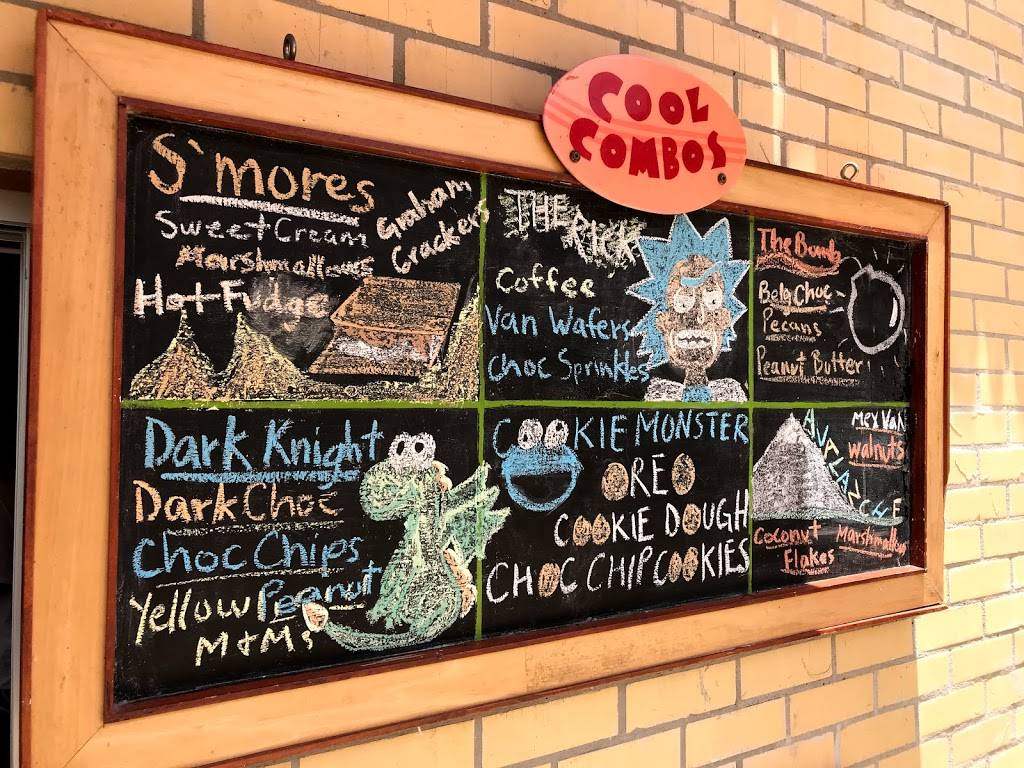 COOL
COMBOS
S'mores
Sweet Cream
Graham
Crackers
Marshmallows
Hot Fudge
THE
RICK
Coffee
Van Wafers
Choc Sprinkles
The Bomb
Belg Choc
Pecans
Peanut Butter
Dark Knight
Dark Choc
Choc Chips
Yellow Peanut
M+Ms
COOKIE MONSTER
OREO
COOKIE DOUGH
CHOC CHIP COOKIES
AVALANCHE
Mex Van
walnuts
Coconut
Flakes
Marshmallow